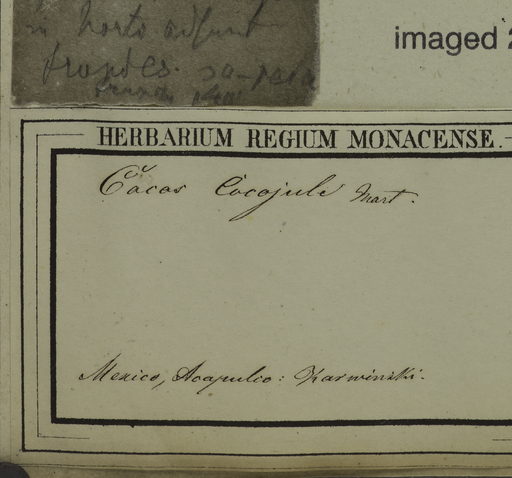 in horto
imaged 2
HERBARIUM REGIUM MONACENSE.
Cocos Cocojule Mart.
Mexico, Acapulco: Karwinski.